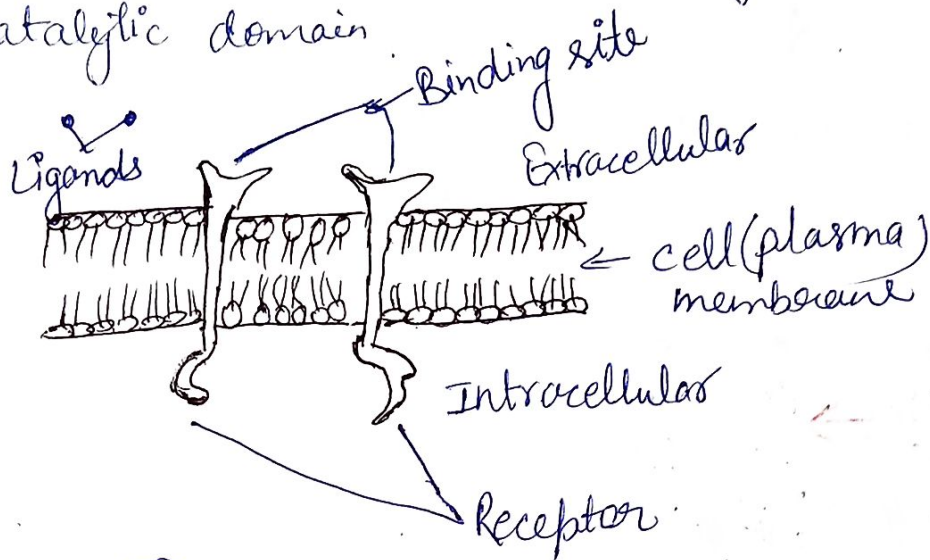 atalytic domain
Binding site
Ligands
Extracellular
cell (plasma)
membrane
Intracellular
Receptor